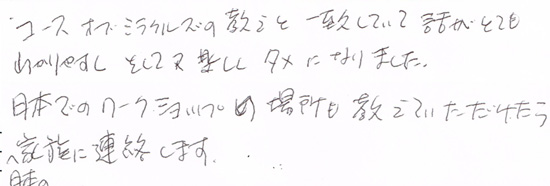 コースオブミラクルズの教えと一致していて話がとても
わかりやすし そして又楽しく タメになりました。
日本でのワークショップの場所も教えていただけたら
家族に連絡します。
日本の